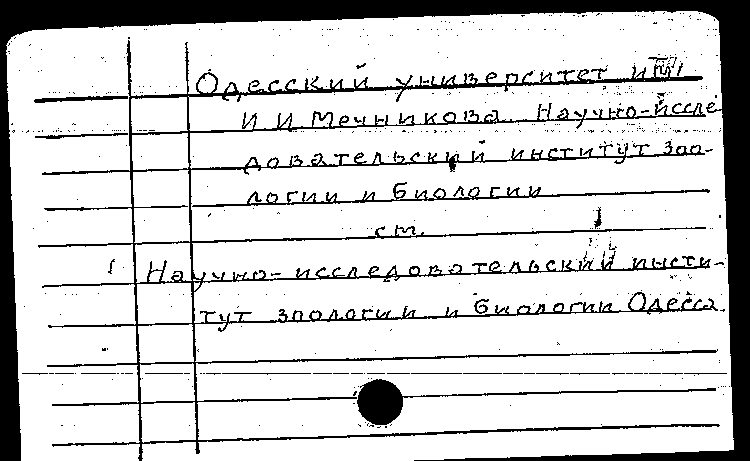 Одесский университет им
И И Мечникова. Научно-иссле
довательский институт зоо-
логии и биологии
см.
Научно-исследовательский инсти-
тут зоологии и биологии Одесса